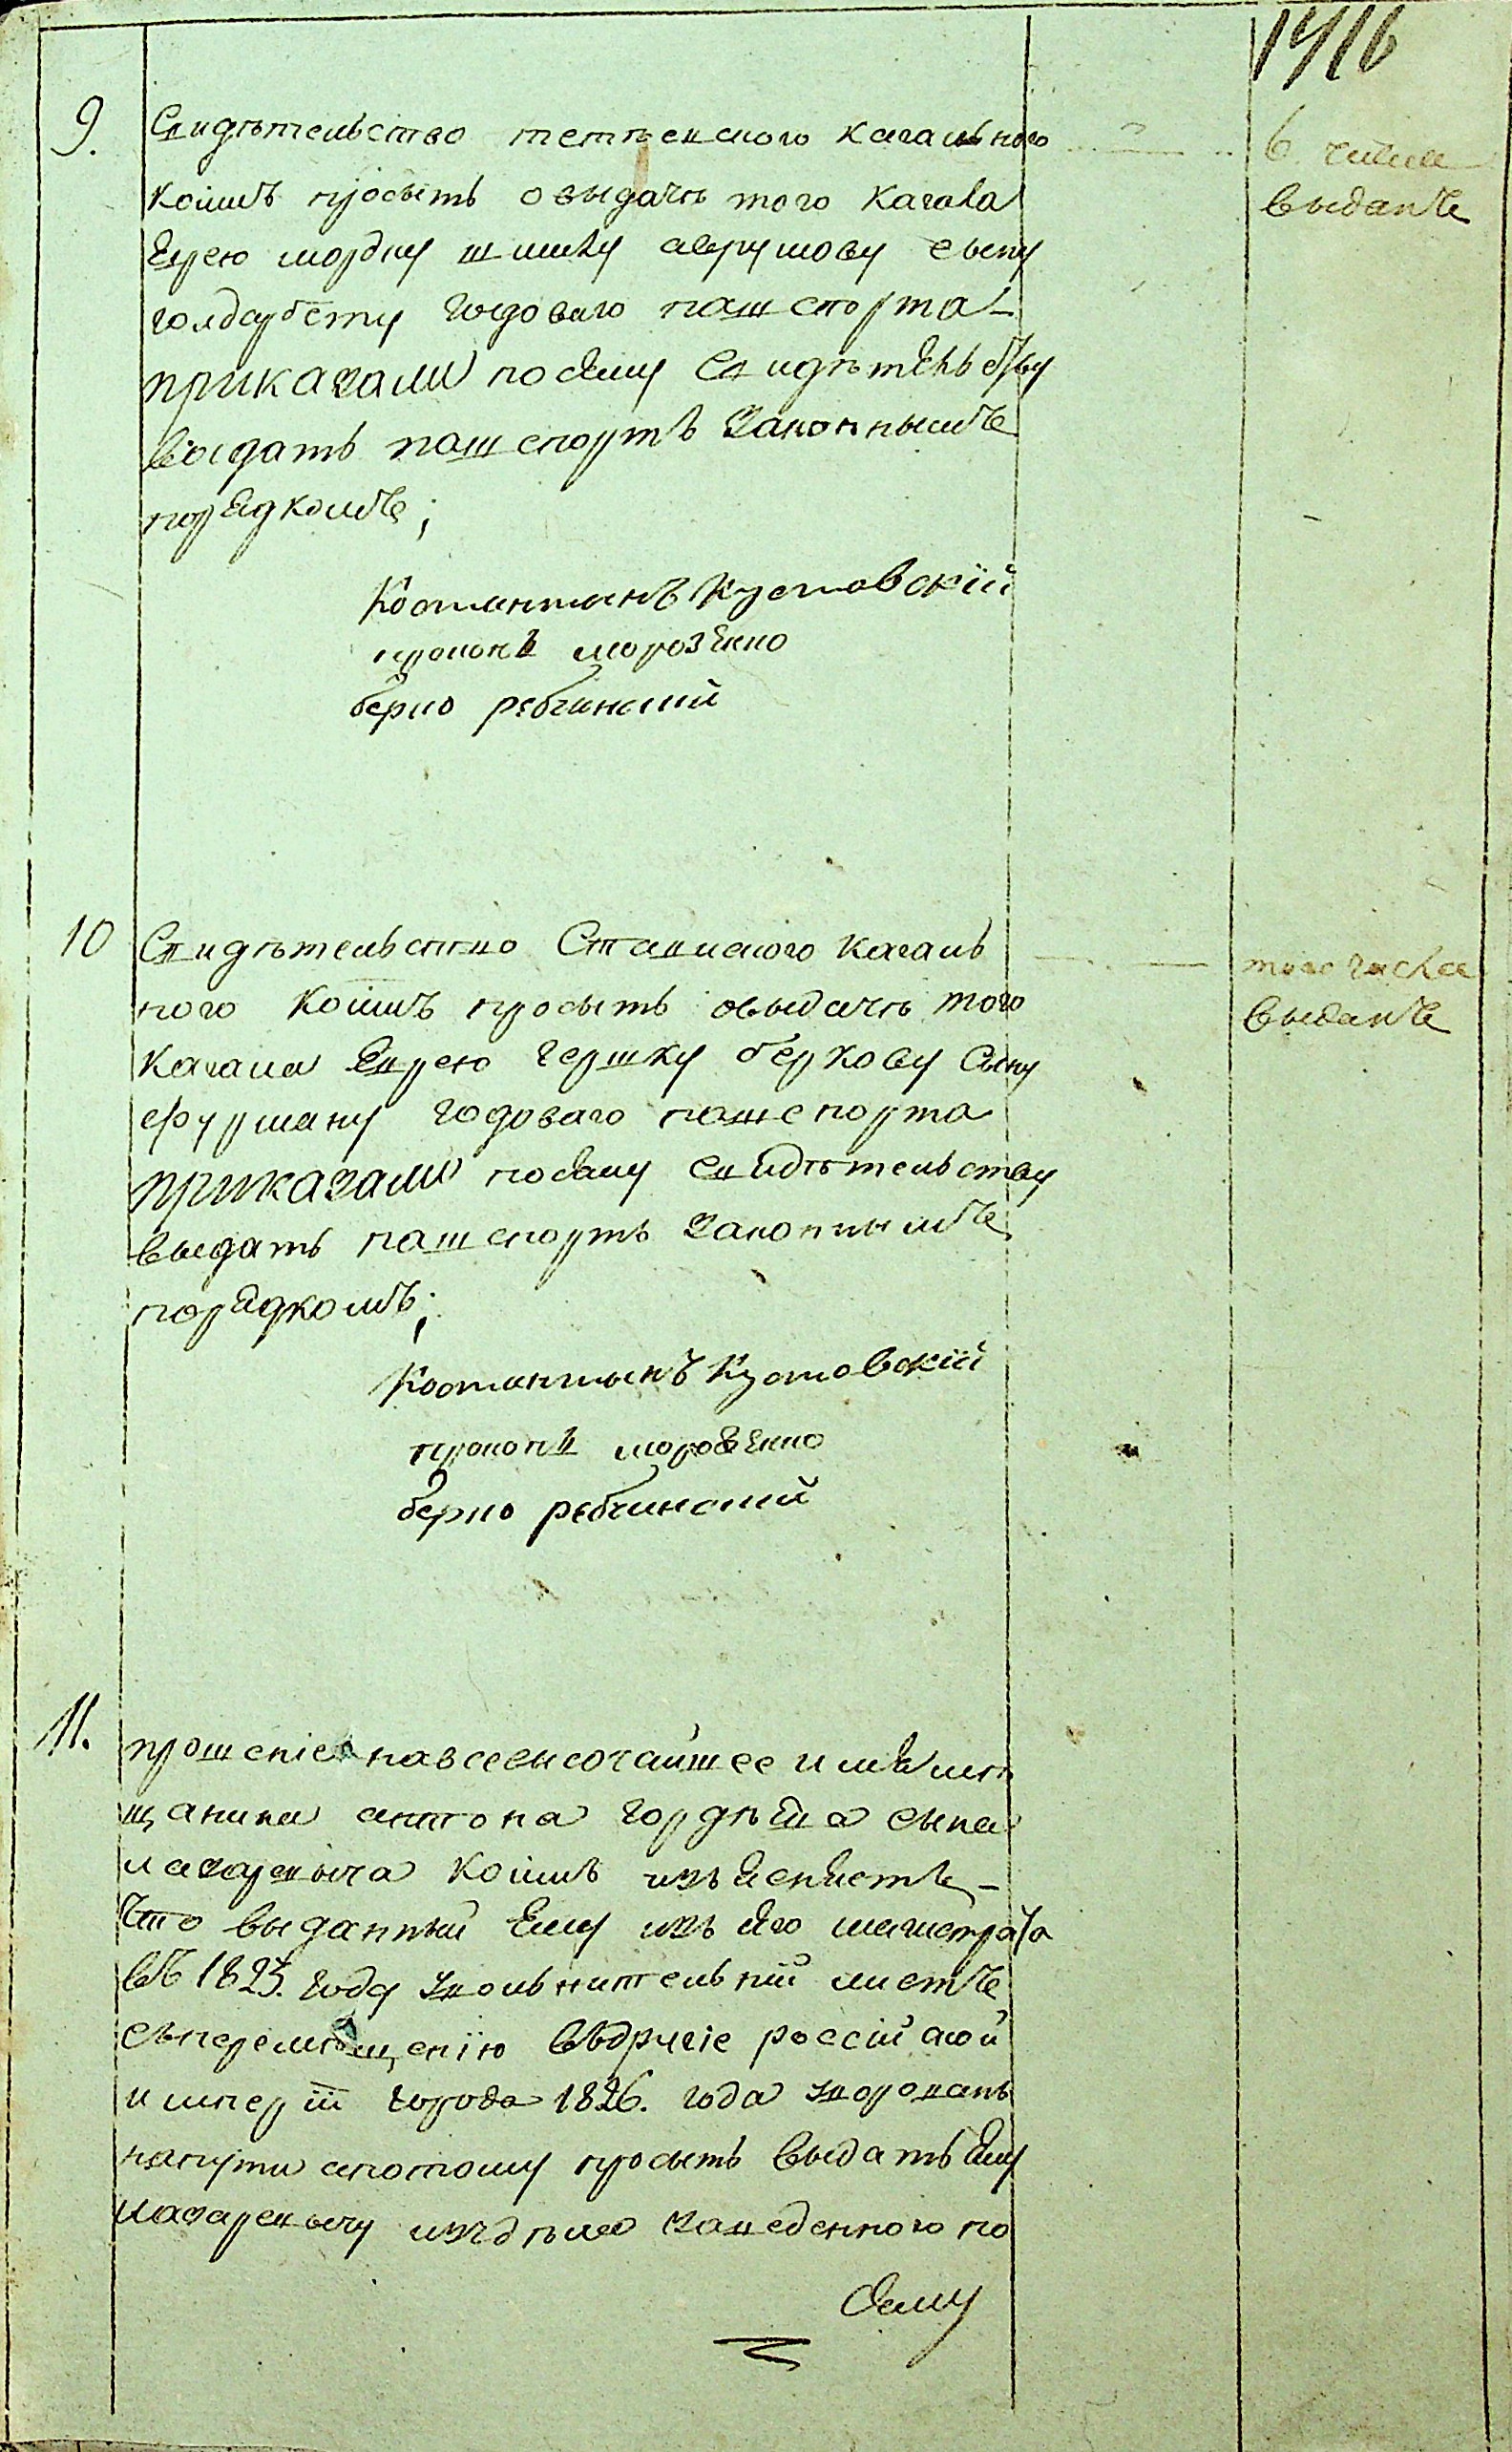 1416
9.
Свидѣтельство тетѣевского кагального
коимъ просыть овыдачѣ того кагала
Еврею мордку шмилу аврумову сыну
голдарбету годоваго пашпорта
приказали посему Свидѣтельству
выдать пашпортъ Законнымъ
порядкомъ;
6. числа
выданъ
Костантынъ Кустовскій
прокопъ морозенко
берко рябчинский
10
Свидѣтельство Ставиского кагаль
ного коимъ просыть овыдачѣ того
кагала Еврею гершку беркову Сыну
фурману годоваго пашепорта
приказали посему свидѣтельству
выдать пашпортъ Законнымъ
порядкомъ;
того числа
выданъ
Костантынъ Кустовскій
прокопъ морозенко
берко рябчинский
11.
прошеніе навсевысочайшее имя мѣ
щанина антона гордѣева сына
лазаревыча коимъ изъясняетъ
Что выданный Ему изъ Сего магистрата
въ 1825. году увольнительній листъ
съперемѣщенію въдругіе россійской
имперіи города 1826. года уворованъ
напути апотому просыть выдать Ему
Лазаревычу издѣла заведенного по
Сему